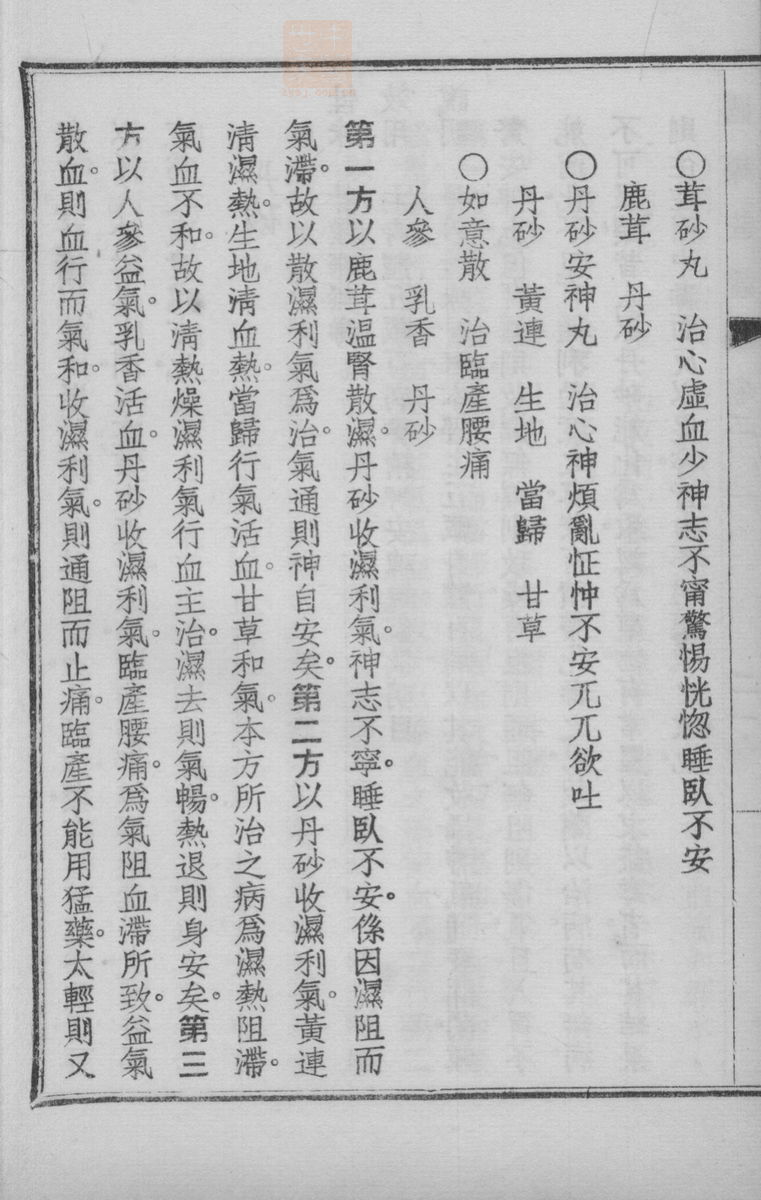 〇茸砂丸　治心虛血少神志不甯驚惕恍惚睡臥不安
鹿茸　丹砂
〇丹砂安神丸　治心神煩亂怔忡不安兀兀欲吐
丹砂　黃連　生地　當歸　甘草
〇如意散　治臨產腰痛
人參　乳香　丹砂
第一方以鹿茸溫腎散濕。丹砂收濕利氣。神志不寧。睡臥不安。係因濕阻而
氣滯。故以散濕利氣爲治。氣通則神自安矣。第二方以丹砂收濕利氣。黃連
清濕熱。生地清血熱。當歸行氣活血。甘草和氣。本方所治之病爲濕熱阻滯。
氣血不和。故以清熱燥濕利氣行血主治。濕去則氣暢。熱退則身安矣。第三
方以人參益氣。乳香活血。丹砂收濕利氣。臨產腰痛。爲氣阻血滯所致。益氣
散血。則血行而氣和。收濕利氣。則通阻而止痛。臨產不能用猛藥。太輕則又